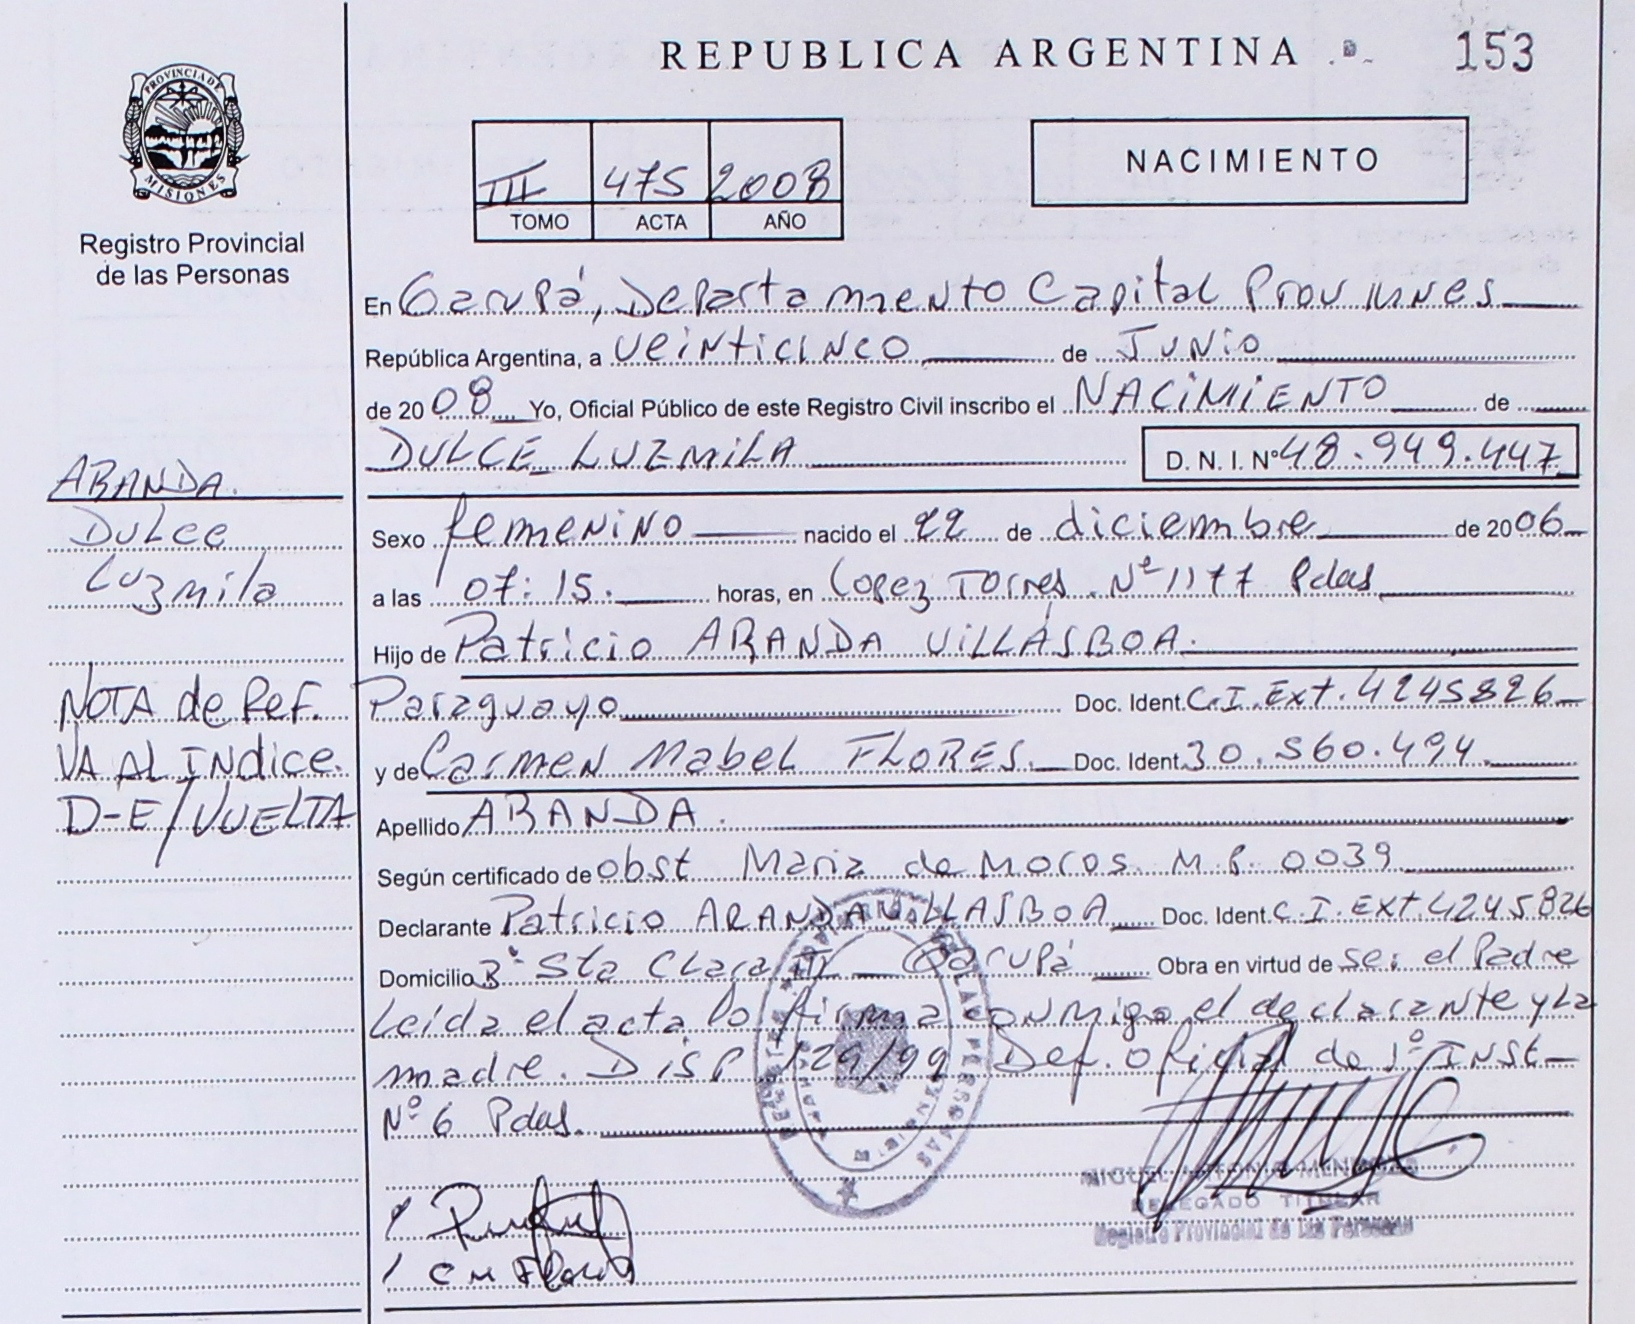 REPUBLICA ARGENTINA
153
PROVINCIA DE MISIONES
Registro Provincial
de las Personas
III 475 2008
TOMO ACTA AÑO
NACIMIENTO
En Garupá, Departamento Capital Prov Mnes
República Argentina, a veinticinco de Junio
de 2008 Yo, Oficial Público de este Registro Civil inscribo el NACIMIENTO de
DULCE LUZMILA D. N. I. Nº 48.949.447
ARANDA.
Dulce
Luzmila
Sexo femenino nacido el 22 de diciembre de 2006
a las 07:15. horas, en Lopez Torres Nº 1177 Pdas
Hijo de Patricio ARANDA VILLASBOA.
NOTA de Ref.
VA AL INdice.
D-E/VUELTA
Paraguayo Doc. Ident. C.I. Ext. 4245826
y de Carmen Mabel FLORES. Doc. Ident. 30.560.494
Apellido ARANDA.
Según certificado de obst Maria de Moros M.P. 0039
Declarante Patricio ARANDA VILLASBOA Doc. Ident. C.I. EXT. 4245826
Domicilio Bº Sta Clara III Garupá Obra en virtud de ser el Padre
Leida el acta lo firma conmigo el declarante y la
madre. Disp 129/99 Def. oficial de 1º Inst
Nº 6 Pdas.
MIGUEL ANTONIO MENDOZA
DELEGADO TITULAR
Registro Provincial de las Personas
C M Flores